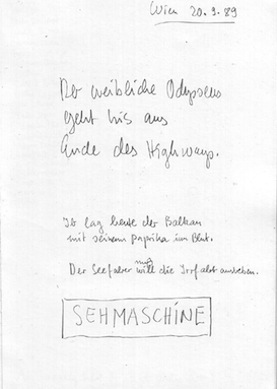 Wien 20.9.89
Der weibliche Odysseus
geht bis ans
Ende des Highways.
Ich lag heute der Balkan
mit seinem Paprika im Blut.
Der Seefahrer muß
will die Irrfahrt ausheben.
SEHMASCHINE